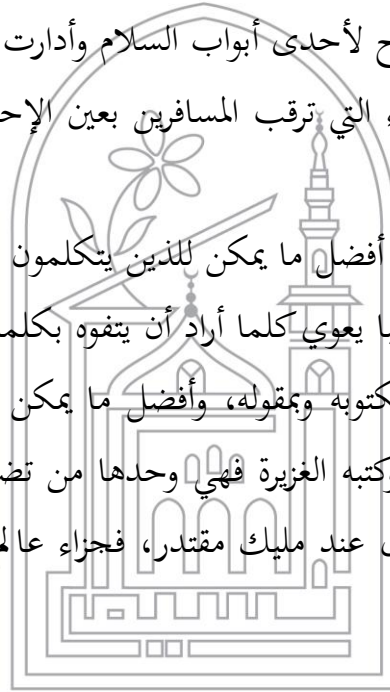 ح لأحدى أبواب السلام وأدارت
التي ترقب المسافرين بعين الإح
أفضل ما يمكن للذين يتكلمون
ا يعوي كلما أراد أن يتفوه بكلم
كتوبه وبمقوله، وأفضل ما يمكن
وكتبه الغزيرة فهي وحدها من تض
عند مليك مقتدر، فجزاء عال